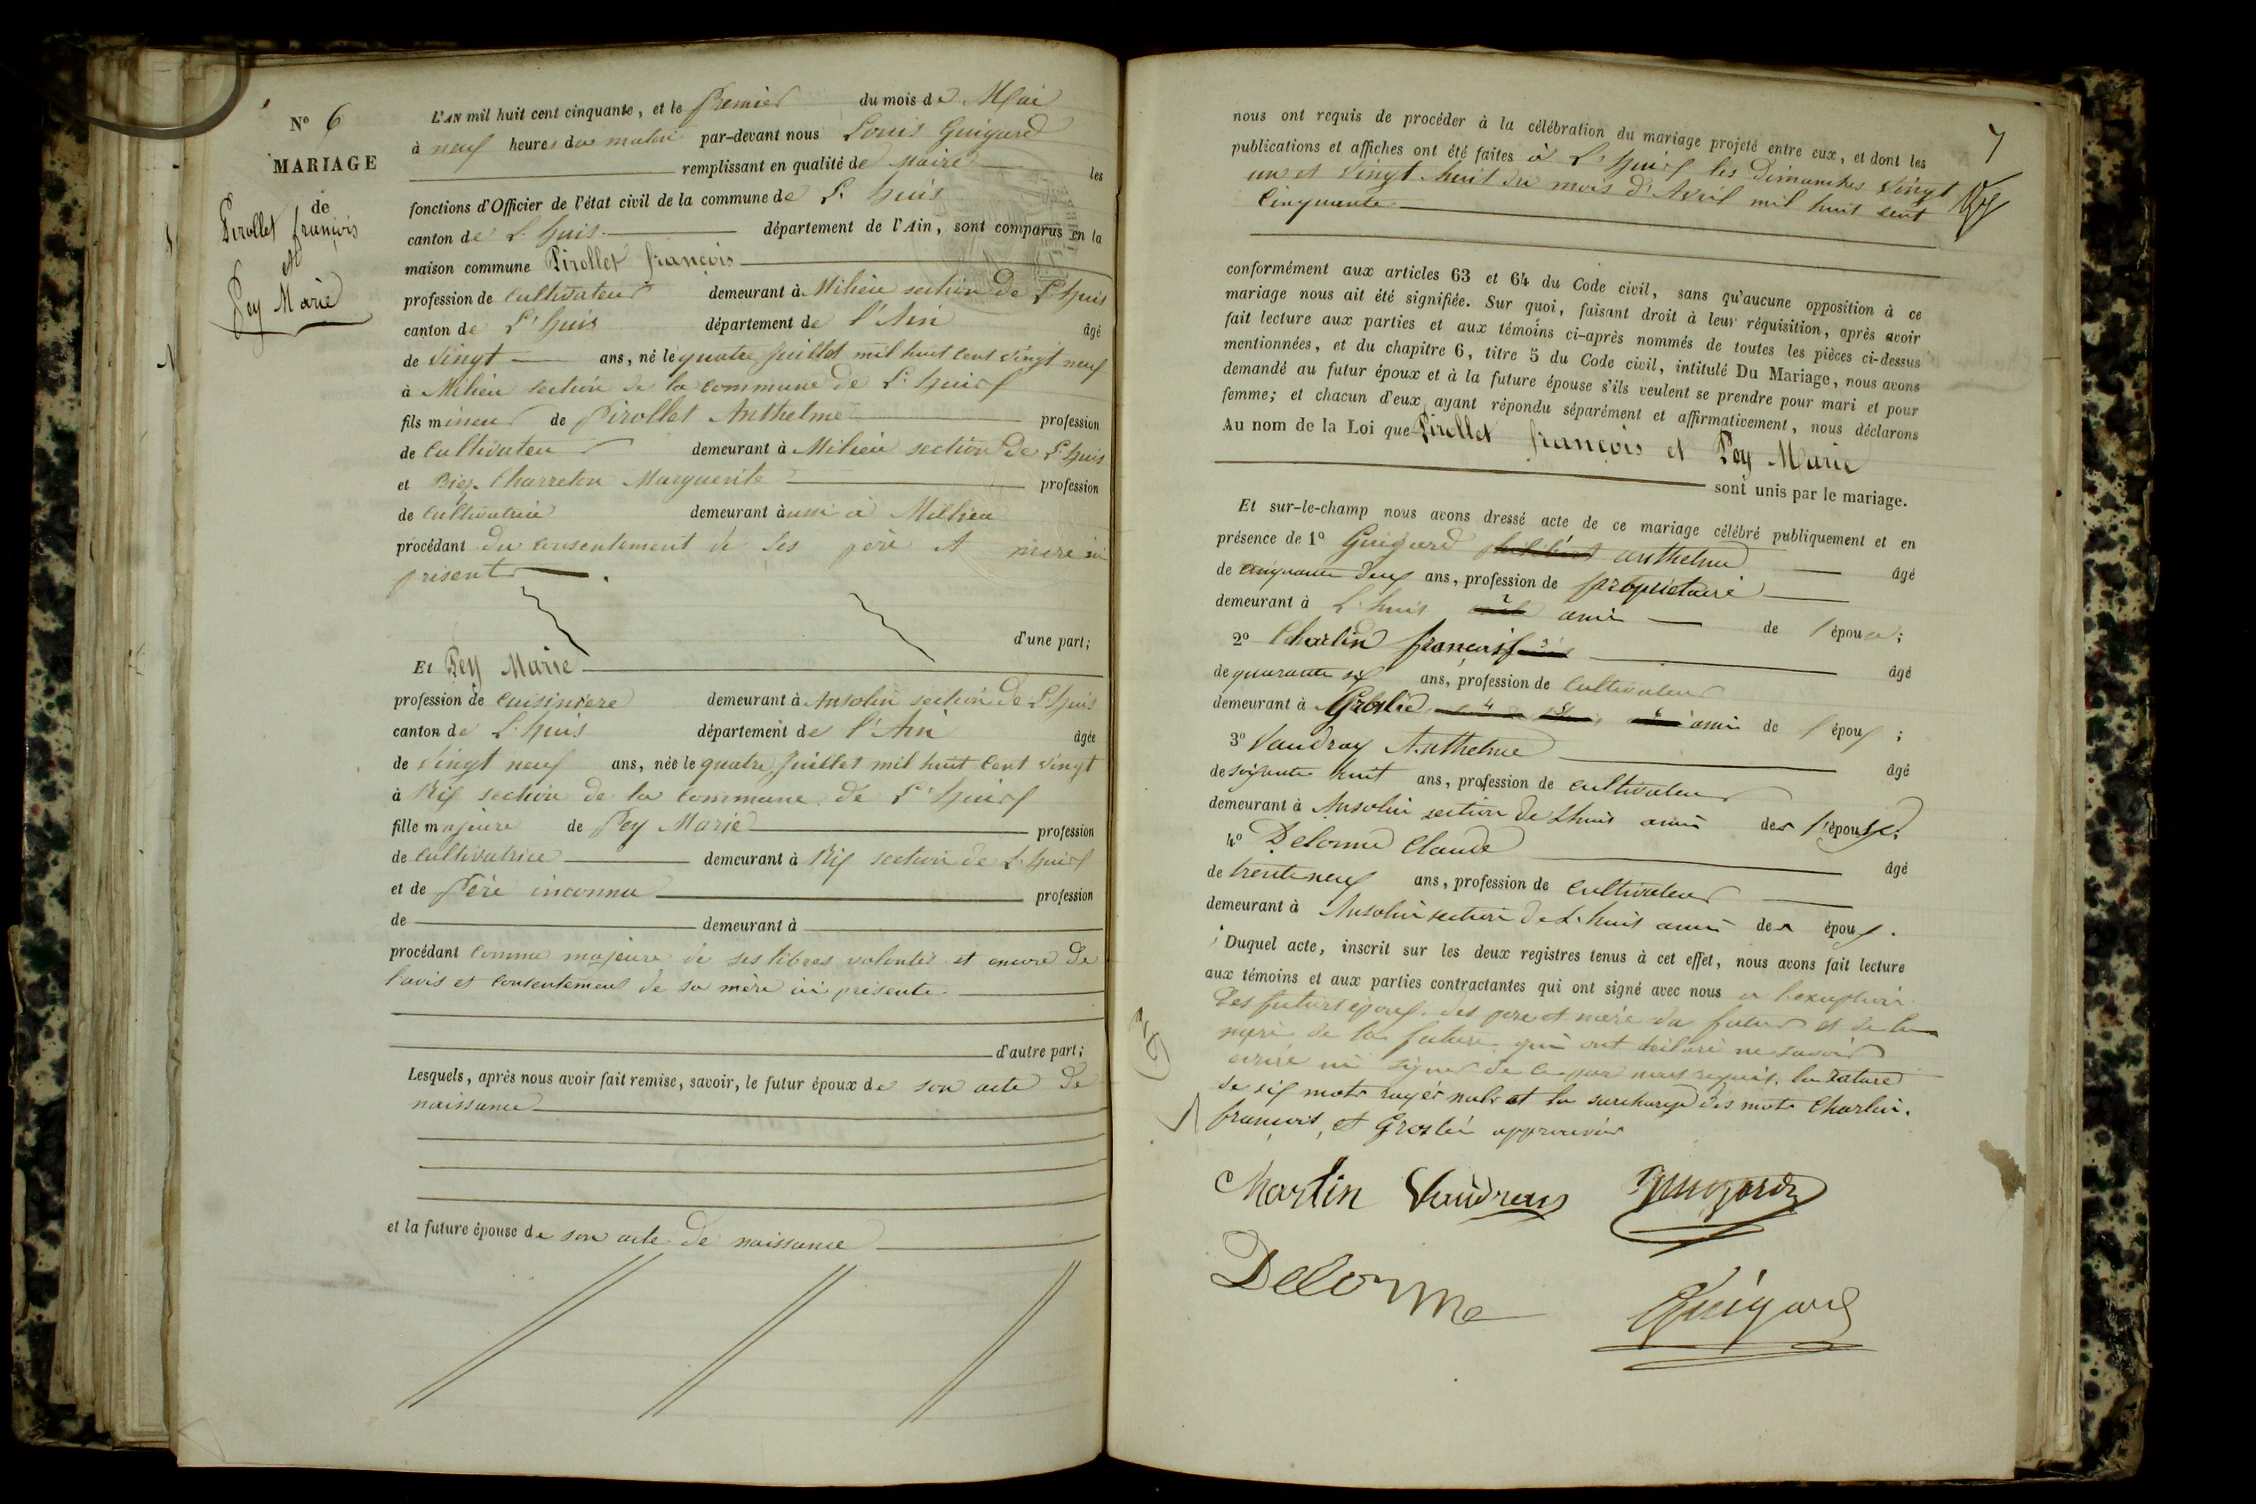 N° 6
MARIAGE
de
Pirollet françois
et
Pey Marie
L'AN mil huit cent cinquante, et le Premier du mois de Mai
à neuf heures du matin par-devant nous Louis Guigard
remplissant en qualité de Maire les
fonctions d'Officier de l'état civil de la commune de L'huis
canton de L'huis département de l'Ain, sont comparus en la
maison commune Pirollet françois
profession de Cultivateur demeurant à Milieu section de L'huis
canton de L'huis département de l'Ain âgé
de Vingt ans, né le quatre Juillet mil huit cent vingt neuf
à Milieu section de la commune de L'huis
fils mineur de Pirollet Anthelme profession
de Cultivateur demeurant à Milieu section de L'huis
et Charreton Marguerite profession
de Cultivatrice demeurant aussi à Millieu
procédant du consentement de ses père et mère ici
présents
d'une part;
Et Pey Marie
profession de cuisiniere demeurant à Ansolin section de L'huis
canton de L'huis département de l'Ain âgée
de Vingt neuf ans, née le quatre Juillet mil huit cent vingt
à Rix section de la commune de L'huis
fille majeure de Pey Marie profession
de Cultivatrice demeurant à Rix section de L'huis
et de Père inconnu profession
de demeurant à
procédant comme majeure de ses libres volontés et encore de
l'avis et consentement de sa mère ici présente
d'autre part;
Lesquels, après nous avoir fait remise, savoir, le futur époux de son acte de
naissance
et la future épouse de son acte de naissance
7
nous ont requis de procéder à la célébration du mariage projeté entre eux, et dont les
publications et affiches ont été faites à L'huis les dimanches Vingt
un et Vingt huit du mois d'Avril mil huit cent
Cinquante
conformément aux articles 63 et 64 du Code civil, sans qu'aucune opposition à ce
mariage nous ait été signifiée. Sur quoi, faisant droit à leur réquisition, après avoir
fait lecture aux parties et aux témoins ci-après nommés de toutes les pièces ci-dessus
mentionnées, et du chapitre 6, titre 5 du Code civil, intitulé Du Mariage, nous avons
demandé au futur époux et à la future épouse s'ils veulent se prendre pour mari et pour
femme; et chacun d'eux ayant répondu séparément et affirmativement, nous déclarons
Au nom de la Loi que Pirollet françois et Pey Marie
sont unis par le mariage.
Et sur-le-champ nous avons dressé acte de ce mariage célébré publiquement et en
présence de 1° Guigard anthelme âgé
de cinquante deux ans, profession de propriétaire
demeurant à L'huis ami de l'épouse;
2° Charlin françois âgé
de quarante six ans, profession de Cultivateur
demeurant à Groslée ami de l'époux;
3° Vaudray Anthelme âgé
de soixante huit ans, profession de cultivateur
demeurant à Ansolin section de Lhuis ami de l'épouse;
4° Delorme Claude âgé
de trente neuf ans, profession de Cultivateur
demeurant à Ansolin section de L'huis ami des époux.
Duquel acte, inscrit sur les deux registres tenus à cet effet, nous avons fait lecture
aux témoins et aux parties contractantes qui ont signé avec nous a l'exception
des futurs époux, des père et mère du futur et de la
mère de la future qui ont déclaré ne savoir
écrire ni signer de ce par nous requis. la rature
de six mots rayés nuls et la surcharge des mots Charlin.
françois, et Groslée approuvés
Charlin Vaudray Guigard
Delorme
Guigard